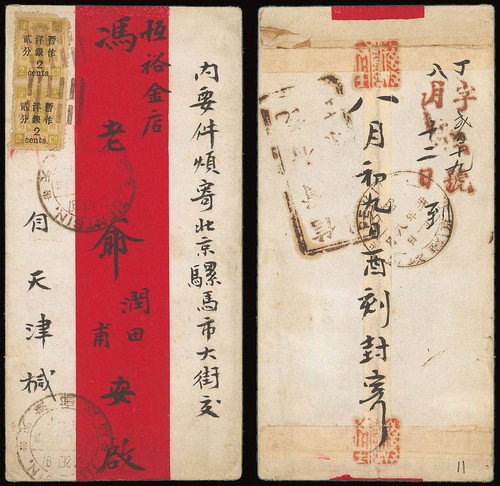 內要件煩寄北京騾馬市大街交
恆裕金店
馮老爺潤田甫安啟
自天津椷
暫作洋銀貳分
2
cents.
暫作洋銀貳分
2
cents.
TIENTSIN
八月十二日至
八月初九日酉刻封寄
11